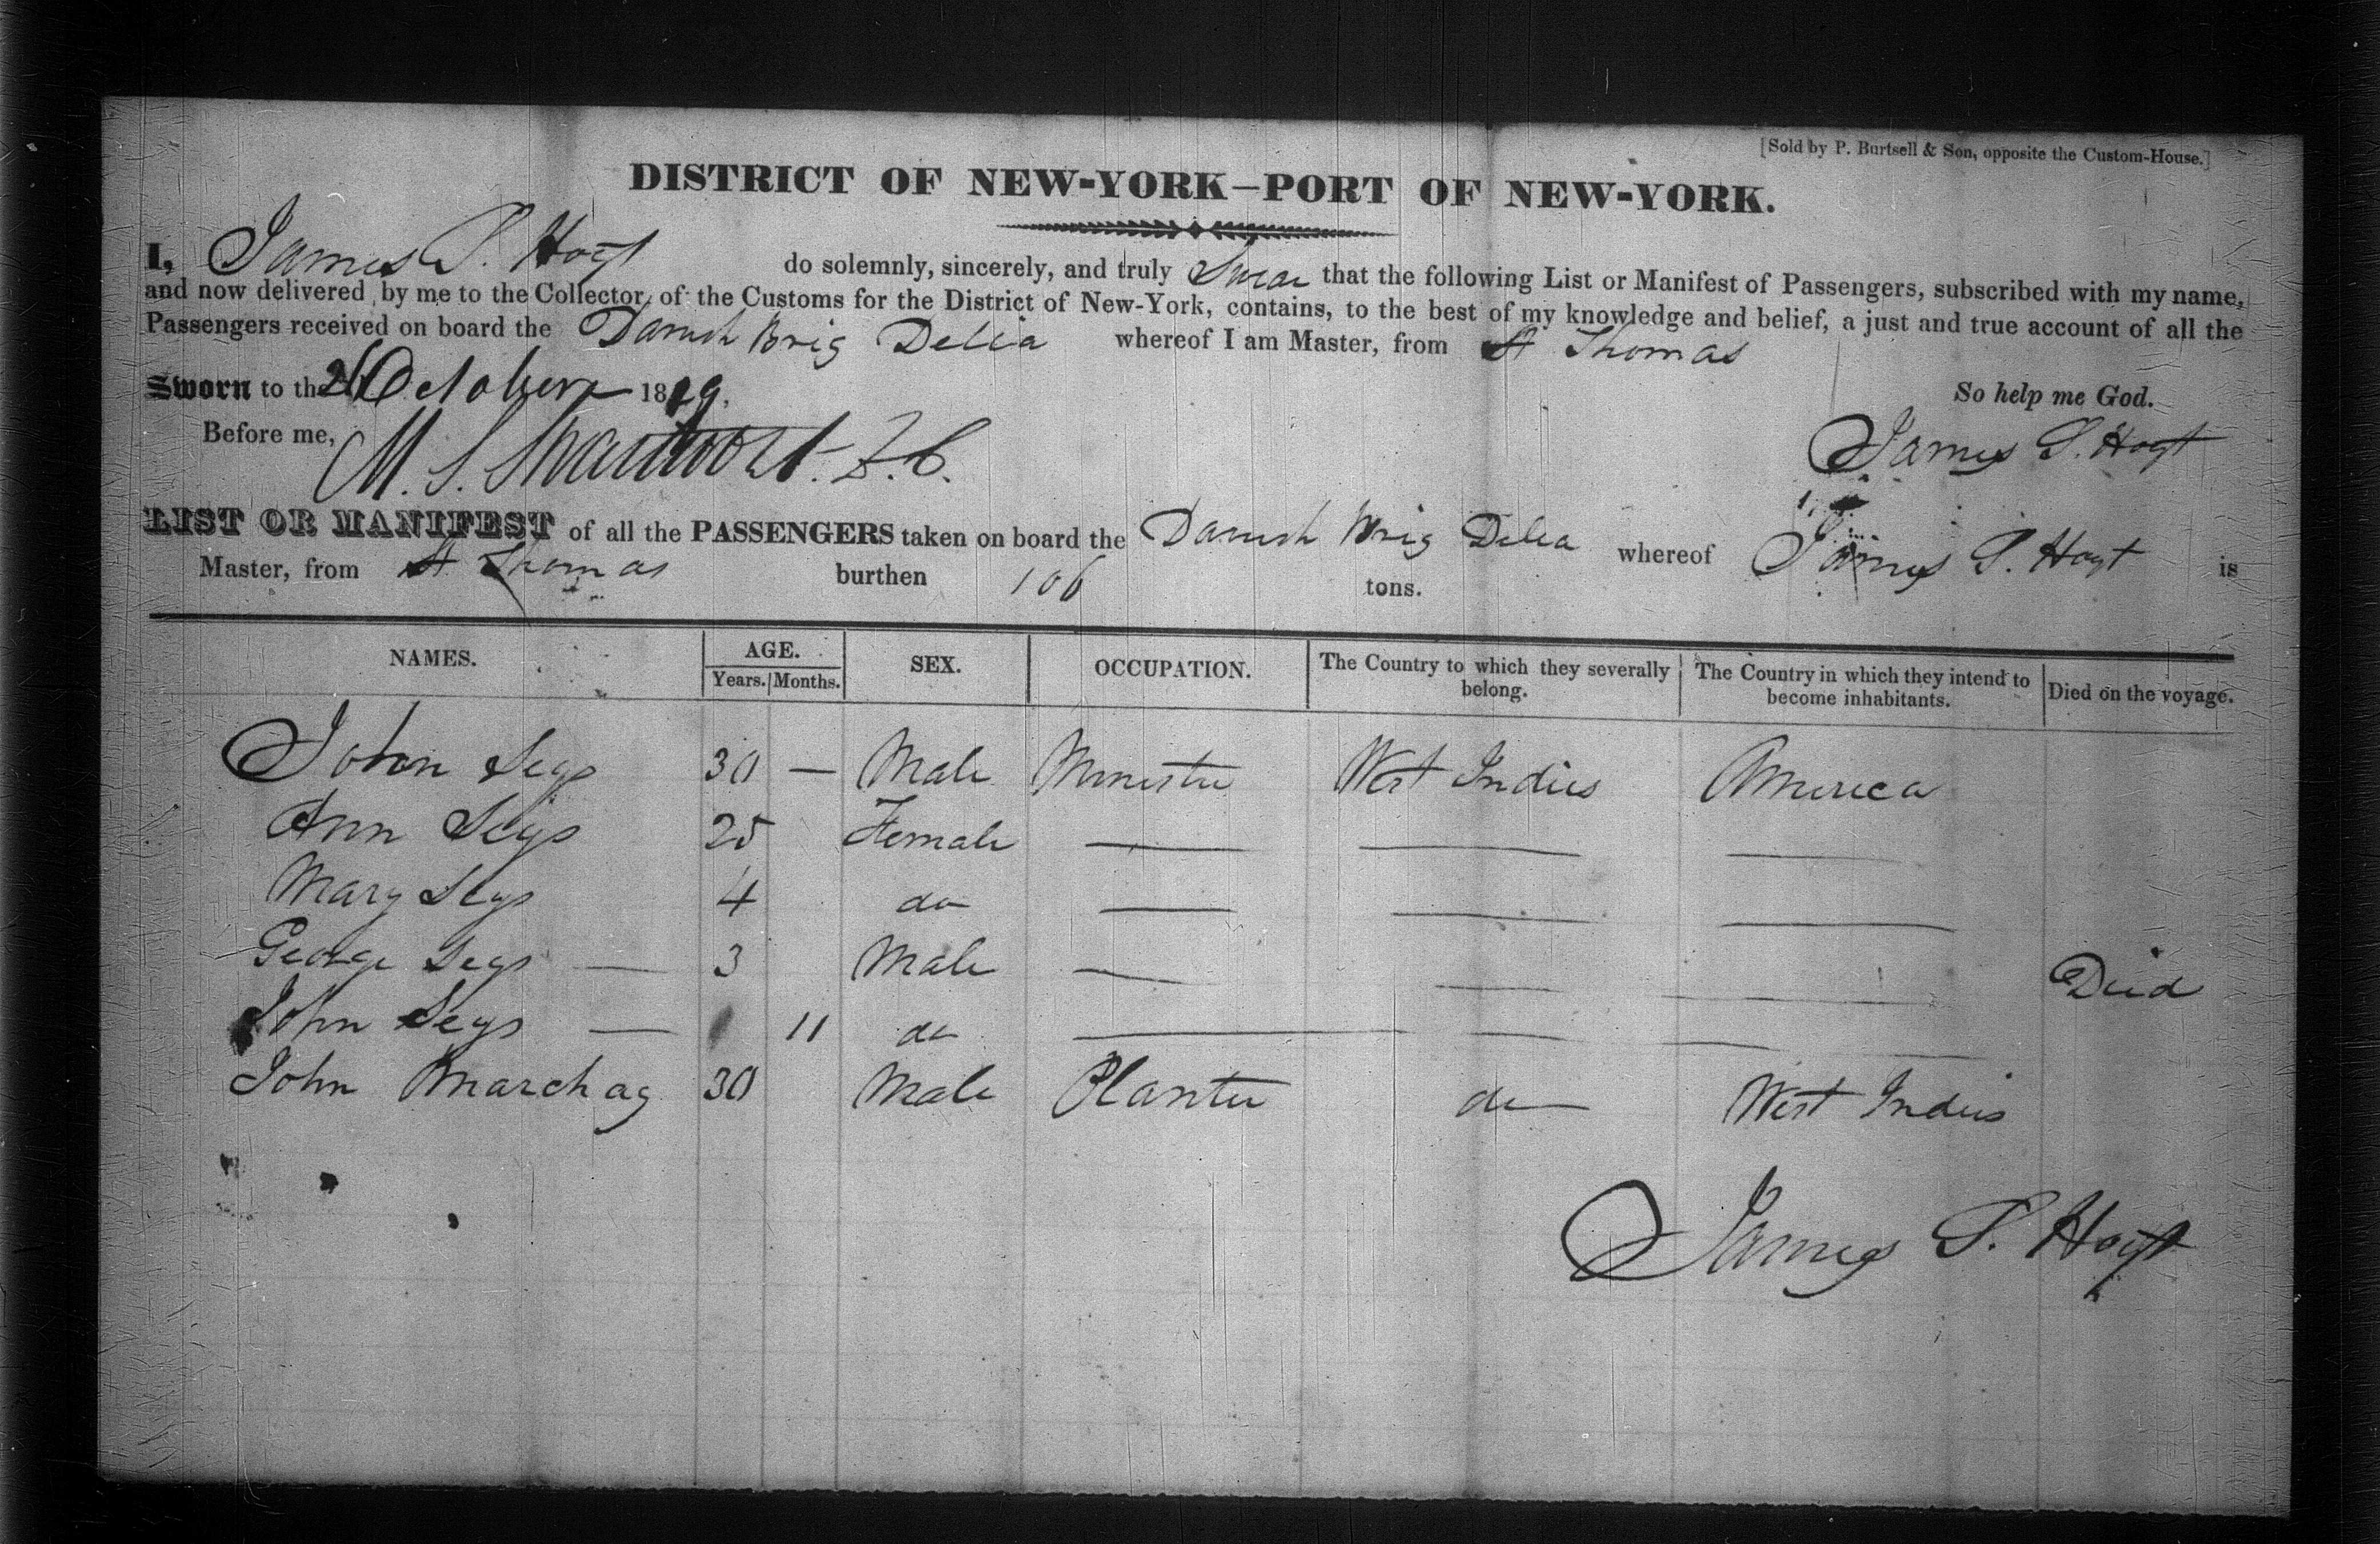 [Sold by P. Burtsell & Son, opposite the Custom-House.]
DISTRICT OF NEW-YORK—PORT OF NEW-YORK.
I, James P. Hoyt do solemnly, sincerely, and truly Swear that the following List or Manifest of Passengers, subscribed with my name,
and now delivered by me to the Collector of the Customs for the District of New-York, contains, to the best of my knowledge and belief, a just and true account of all the
Passengers received on board the Danish Brig Delia whereof I am Master, from St Thomas
Sworn to the October 1829.
So help me God.
Before me, M. S. Swartwout. D.C.
James P. Hoyt
LIST OR MANIFEST of all the PASSENGERS taken on board the Danish Brig Delia whereof James P. Hoyt is
Master, from St Thomas burthen 106 tons.
NAMES. AGE. SEX. OCCUPATION. The Country to which they severally belong. The Country in which they intend to become inhabitants. Died on the voyage.
Years. Months.
John Seys 30 — Male Minister West Indies America
Ann Seys 25 Female — — —
Mary Seys 4 do — — —
George Seys — 3 Male — — — Died
John Seys — 11 do — — —
John Marchag 30 Male Planter do — West Indies
James P. Hoyt